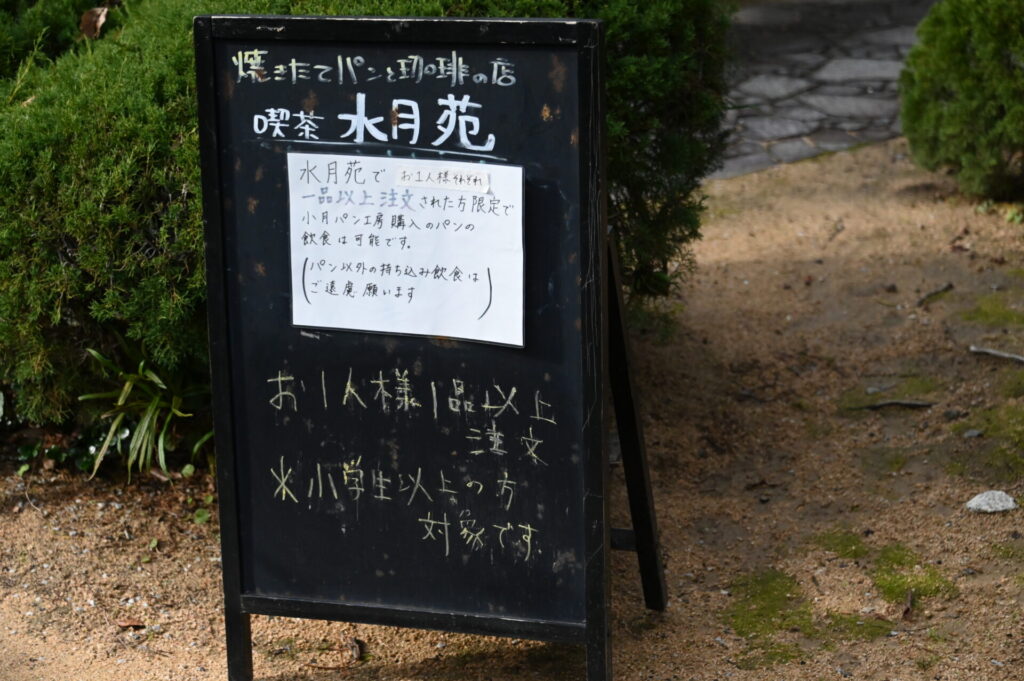 焼きたてパンと珈琲の店
喫茶 水月苑
水月苑で お1人様それぞれ
一品以上注文された方限定で
小月パン工房購入のパンの
飲食は可能です。
(パン以外の持ち込み飲食は
ご遠慮願います)
お1人様1品以上
注文
※小学生以上の方
対象です。